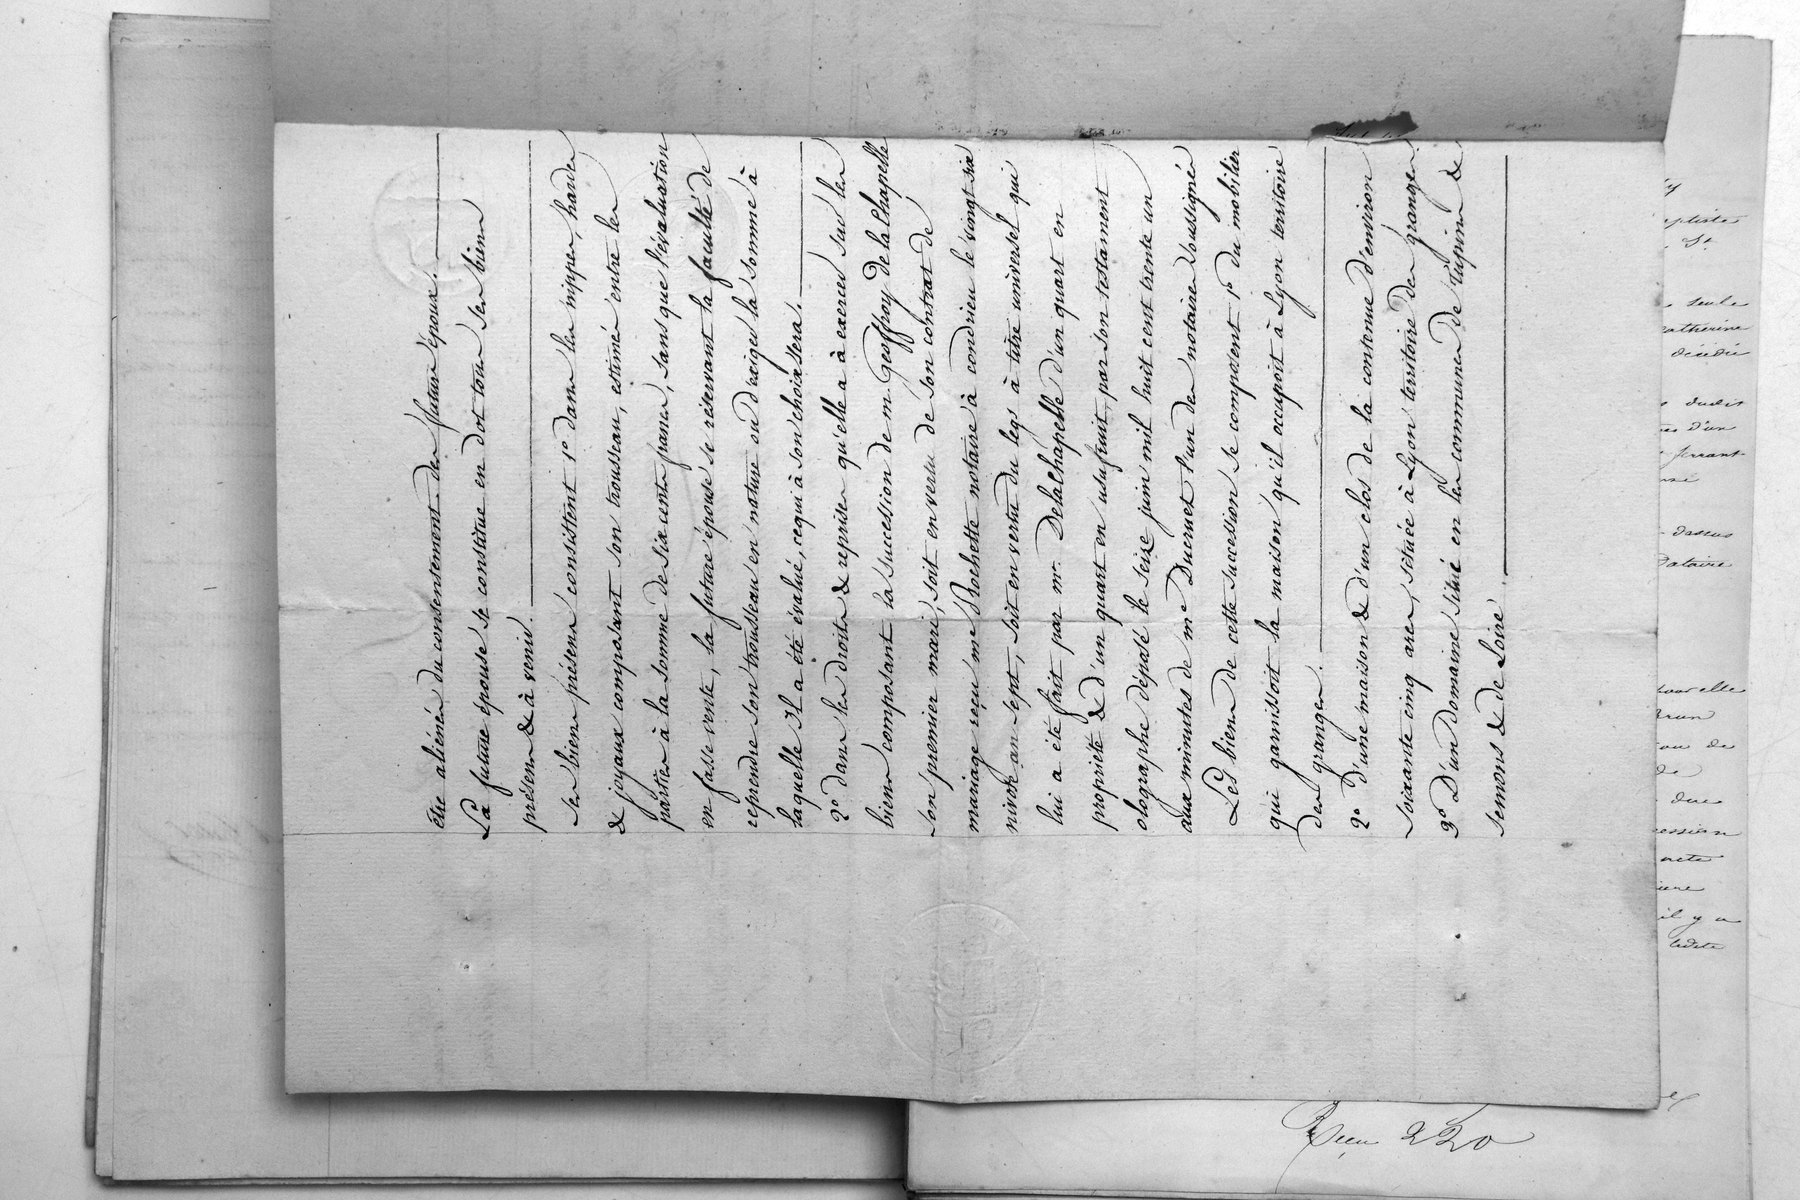 être aliénés du consentement des futurs époux.
La future épouse se constitue en dot tous ses biens
présens & à venir.
Ses biens présens consistent 1º dans les nippes, hardes
& joyaux composant son trousseau, estimés entre les
parties à la somme de six cents francs, sans que l'évaluation
en fasse vente, la future épouse se réservant la faculté de
reprendre son trousseau en nature ou d'exiger la somme à
laquelle Il a été évalué, ce qui à son choix sera.
2º dans les droits & reprises qu'elle a à exercer sur les
biens composant la succession de m. Geoffroy de la Chapelle
son premier mari, soit en vertu de son contrat de
mariage reçu me Rochette notaire à condrieu le vingt six
nivose an sept, soit en vertu du legs à titre universel qui
lui a été fait par mr. Delachapelle d'un quart en
propriété & d'un quart en usufruit, par son testament
olographe déposé le seize juin mil huit cent trente un
aux minutes de me Duernet l'un des notaires soussignés
Les biens de cette succession se composent 1º du mobilier
qui garnissoit la maison qu'il occupoit à Lyon territoire
des granges.
2º D'une maison & d'un clos de la contenue d'environ
soixante cinq ares, située à Lyon territoire des granges.
3º D'un domaine situé en les communes de Tupins &
semons & de Loire.
aptiste
St.
seule
Catherine
décédée
dudit
d'un
dessus
Dataire
pour elle
Brun
de
de
due
cession
acte
il y a
ladite
Reçu 220